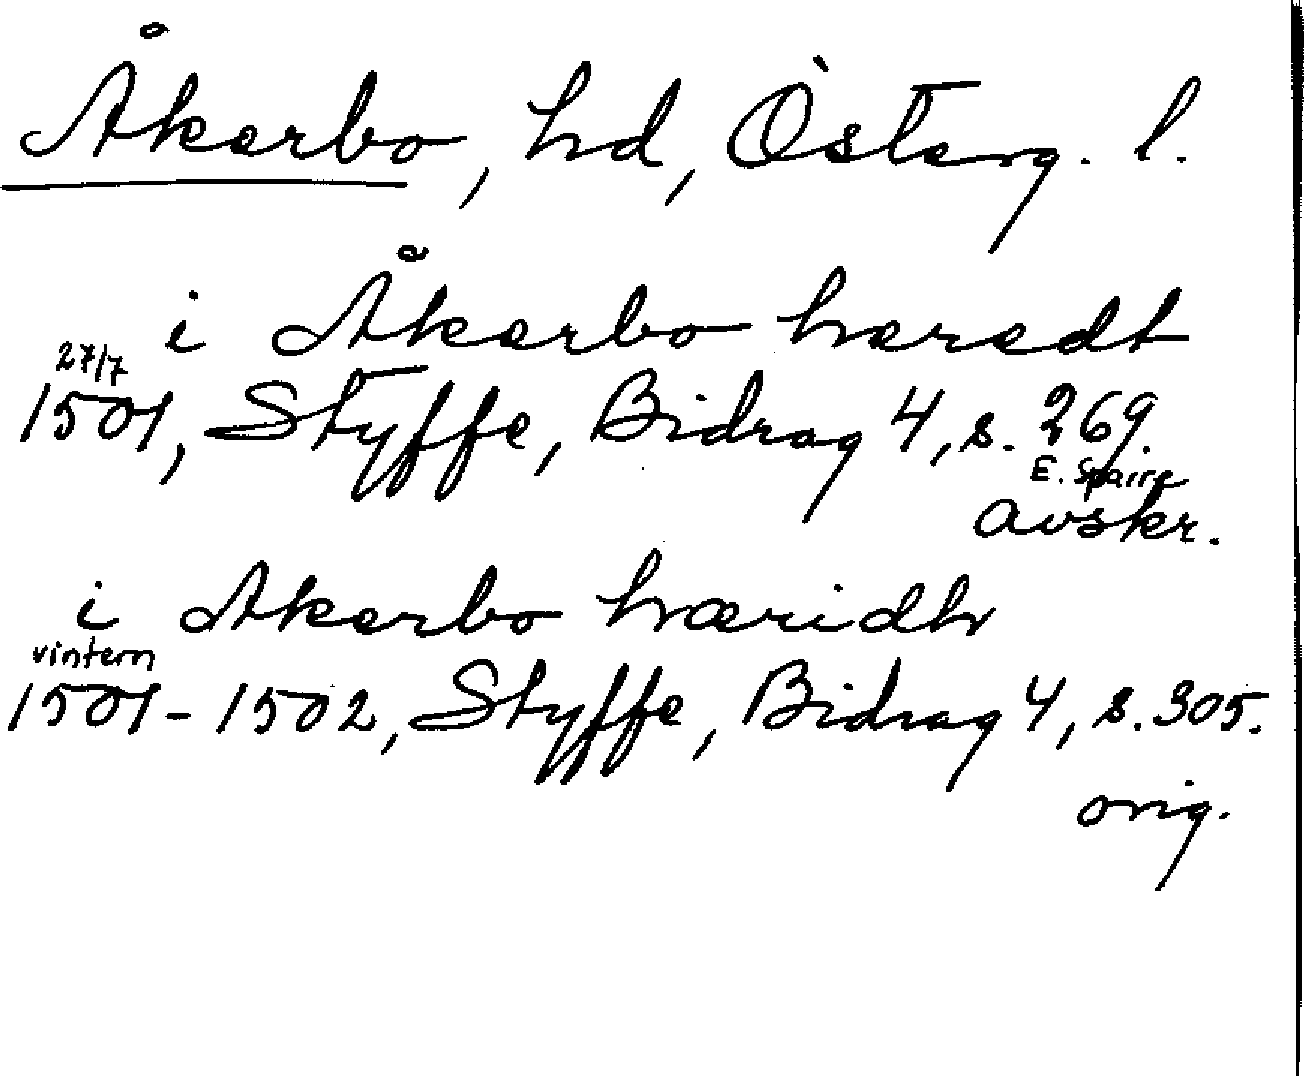 Åkerbo, hd, Österg. l.
i Åkerbo heredt
27/7
1501, Styffe, Bidrag 4, s. 269.
E. Spairs
avskr.
i Akerbo hæridh
vintern
1501-1502, Styffe, Bidrag 4, s. 305.
orig.